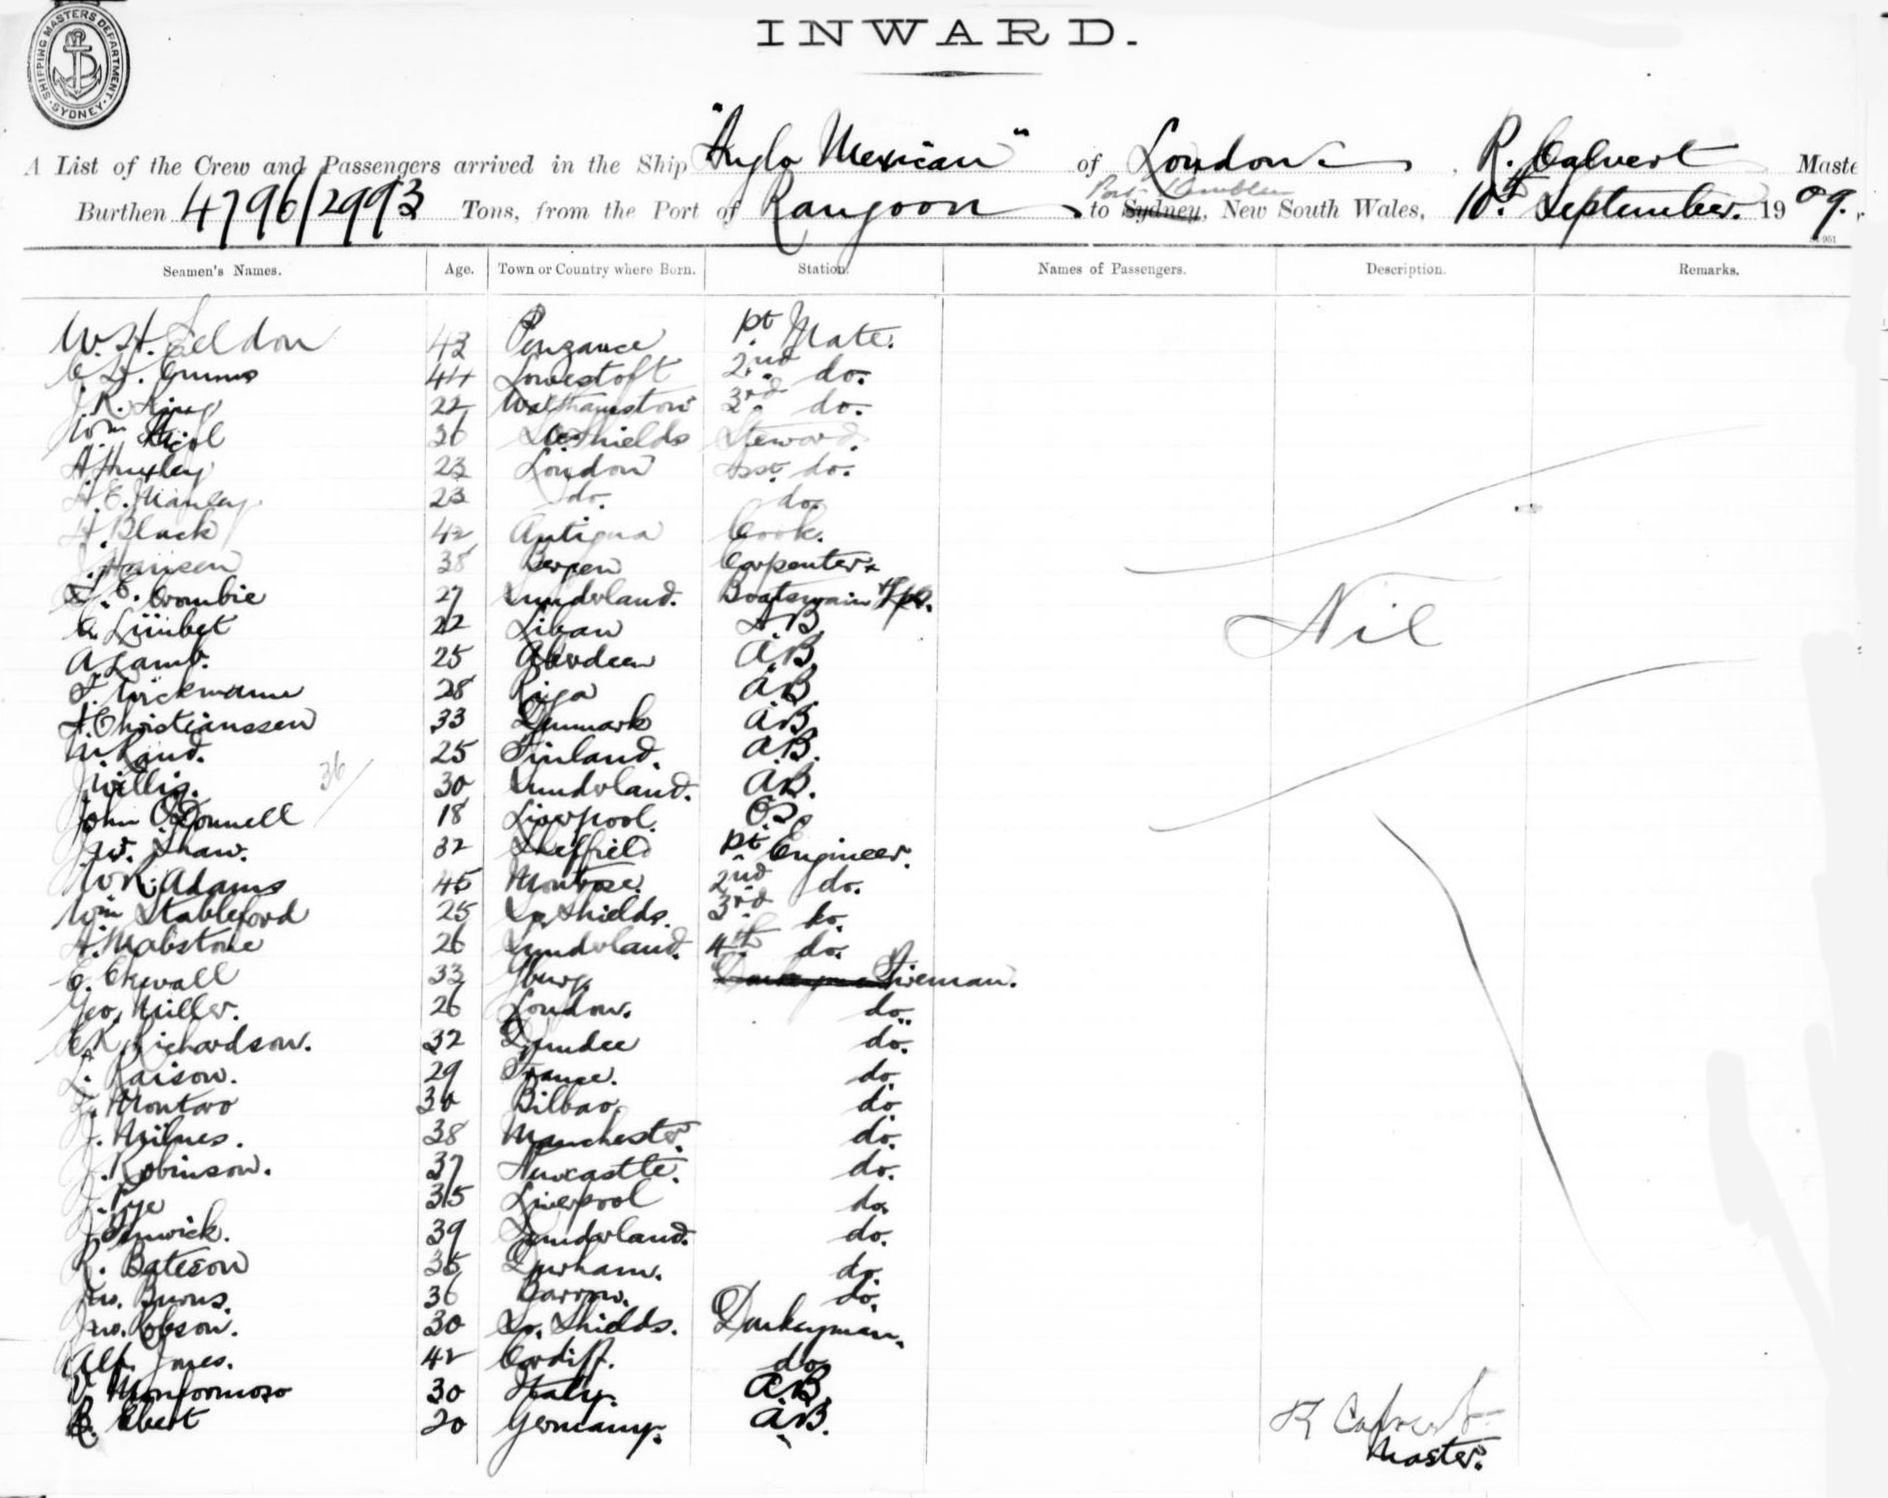 SHIPPING MASTERS DEPARTMENT. SYDNEY.
INWARD.
A List of the Crew and Passengers arrived in the Ship "Anglo Mexican" of London, R. Calvert Maste
Burthen 4796/2993 Tons, from the Port of Rangoon to Sydney, Port Kembla New South Wales, 10th September 1909.
Seamen's Names. Age. Town or Country where Born. Station. Names of Passengers. Description. Remarks.
W. H. Seldon 43 Penzance 1st Mate.
44 Lowestoft 2nd do.
J. R. King 22 Walthamstow 3rd do.
Wm Nicol 36 Shields Steward.
A Huxley 23 London Asst. do.
H. E. Manley 23 do. do.
H. Black 42 Antigua Cook.
J. Hansen 38 Bergen Carpenter
Crombie 27 Sunderland. Boatswain
22 Libau A.B.
A Lamb. 25 Aberdeen A.B.
Wickmann 28 Riga A.B.
Christianssen 33 Denmark A.B.
25 Finland. A.B.
J. Willis. 30 Sunderland. A.B.
36
John O'Donnell 18 Liverpool. O.S.
J. W. Shaw. 32 Sheffield 1st Engineer.
W R. Adams 45 Montrose. 2nd do.
Wm Stableford 25 So. Shields. 3rd do.
26 Sunderland. 4th do.
33 Fireman.
Geo. Miller. 26 London. do.
Richardson. 32 Dundee do.
L. Raison. 29 France. do.
30 Bilbao. do.
J. Milnes. 38 Manchester. do.
J. Robinson. 37 Newcastle. do.
J. Pye 35 Liverpool do.
J. Fenwick. 39 Sunderland. do.
R. Bateson 35 Durham. do.
Jno. Burns. 36 Barrow. do.
Jno. Robson. 30 So. Shields. Donkeyman.
Alf. Jones. 42 Cardiff. do.
30 Italy. A.B.
Ebert 20 Germany. A.B.
Nil
R Calvert
Master.